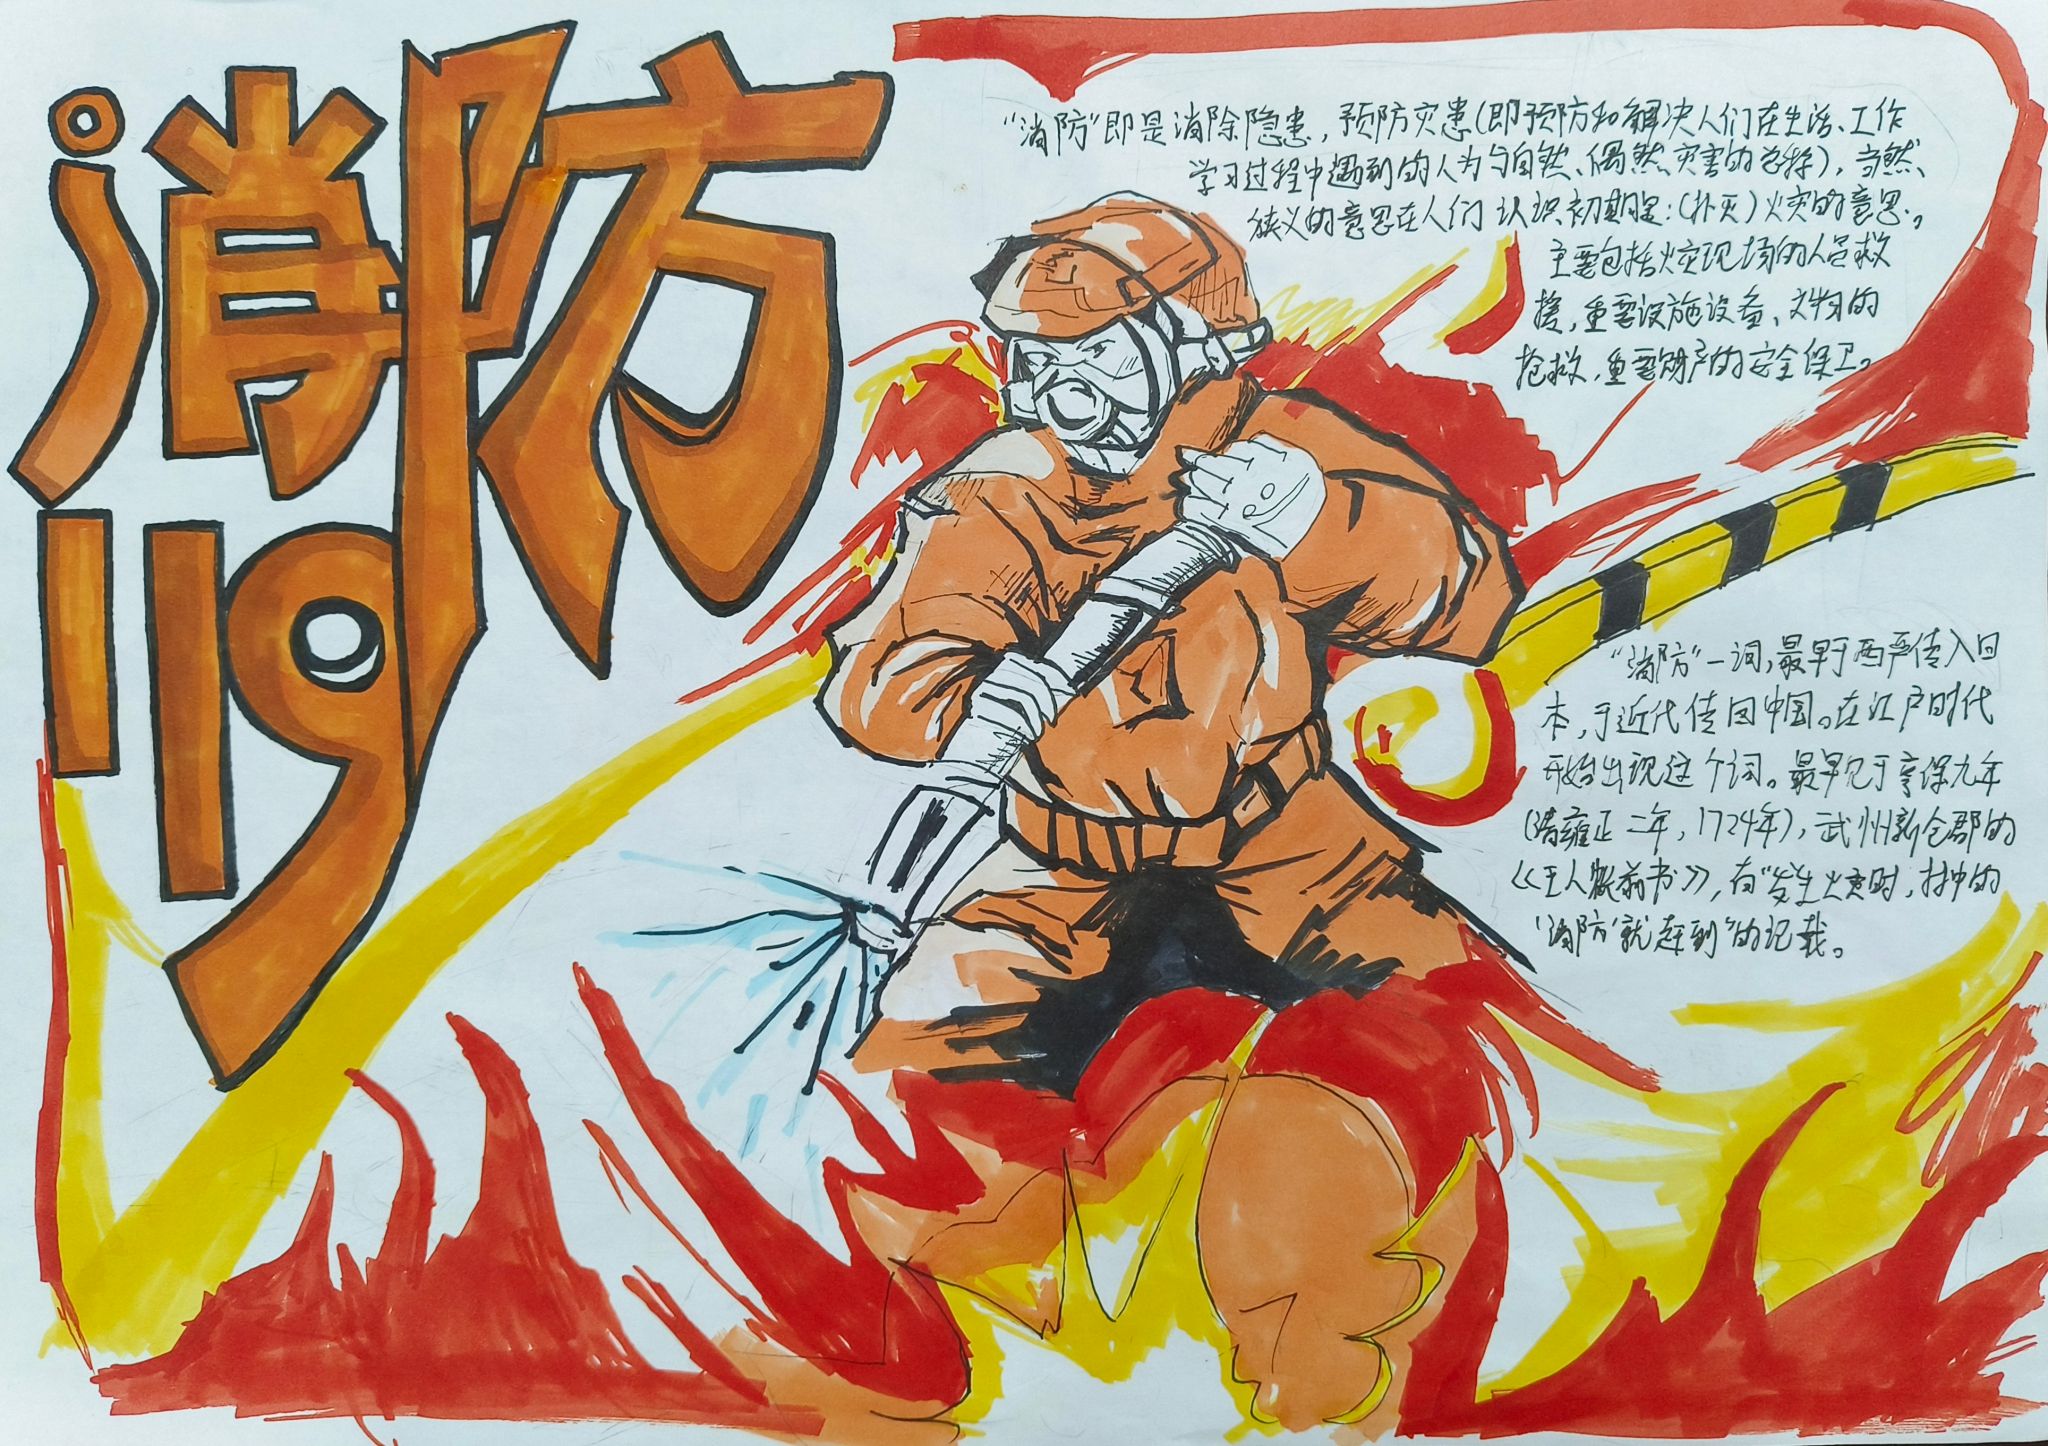 消防
119
“消防”即是消除隐患，预防灾患（即预防和解决人们在生活、工作
学习过程中遇到的人为与自然、偶然灾害的总称），当然、
狭义的意思在人们认识初期是：（扑灭）火灾的意思。
主要包括火灾现场的人员救
援，重要设施设备、文物的
抢救，重要财产的安全保卫。
“消防”一词，最早于西严传入日
本，于近代传回中国。在江户时代
开始出现这个词。最早见于享保九年
（清雍正二年，1724年），武州新仓郡的
《王人帐前书》，有“发生火灾时，村中的
‘消防’就赶到”的记载。